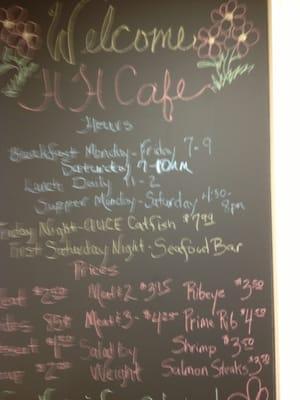 Welcome
HH Cafe
Hours
Breakfast Monday-Friday 7-9
Saturday 7-10AM
Lunch Daily 11-2
Supper Monday-Saturday 4:30-8pm
Friday Night-AUCE Catfish $7.99
First Saturday Night-Seafood Bar
Prices
Meat 2 $3.45 Ribeye $3.50
Meat 3- $4.25 Prime Rib $4.50
Salad by Shrimp $3.50
$2.00 Weight Salmon Steaks $3.50